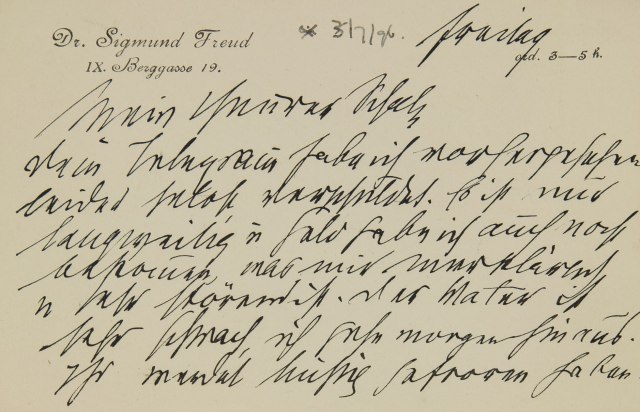 Dr. Sigmund Freud
IX. Berggasse 19.
* 3/7/96.
Freitag
ord. 3—5 h.
Mein theurer Schatz
dein Telegramm habe ich vorhergesehen
leider selbst verschuldet. Es ist mir
langweilig u Geld habe ich auch noch
bekommen, was mir unerklärlich
u sehr störend ist. Der Vater ist
sehr schwach, ich gehe morgen hinaus.
Ihr werdet tüchtig gefroren haben.